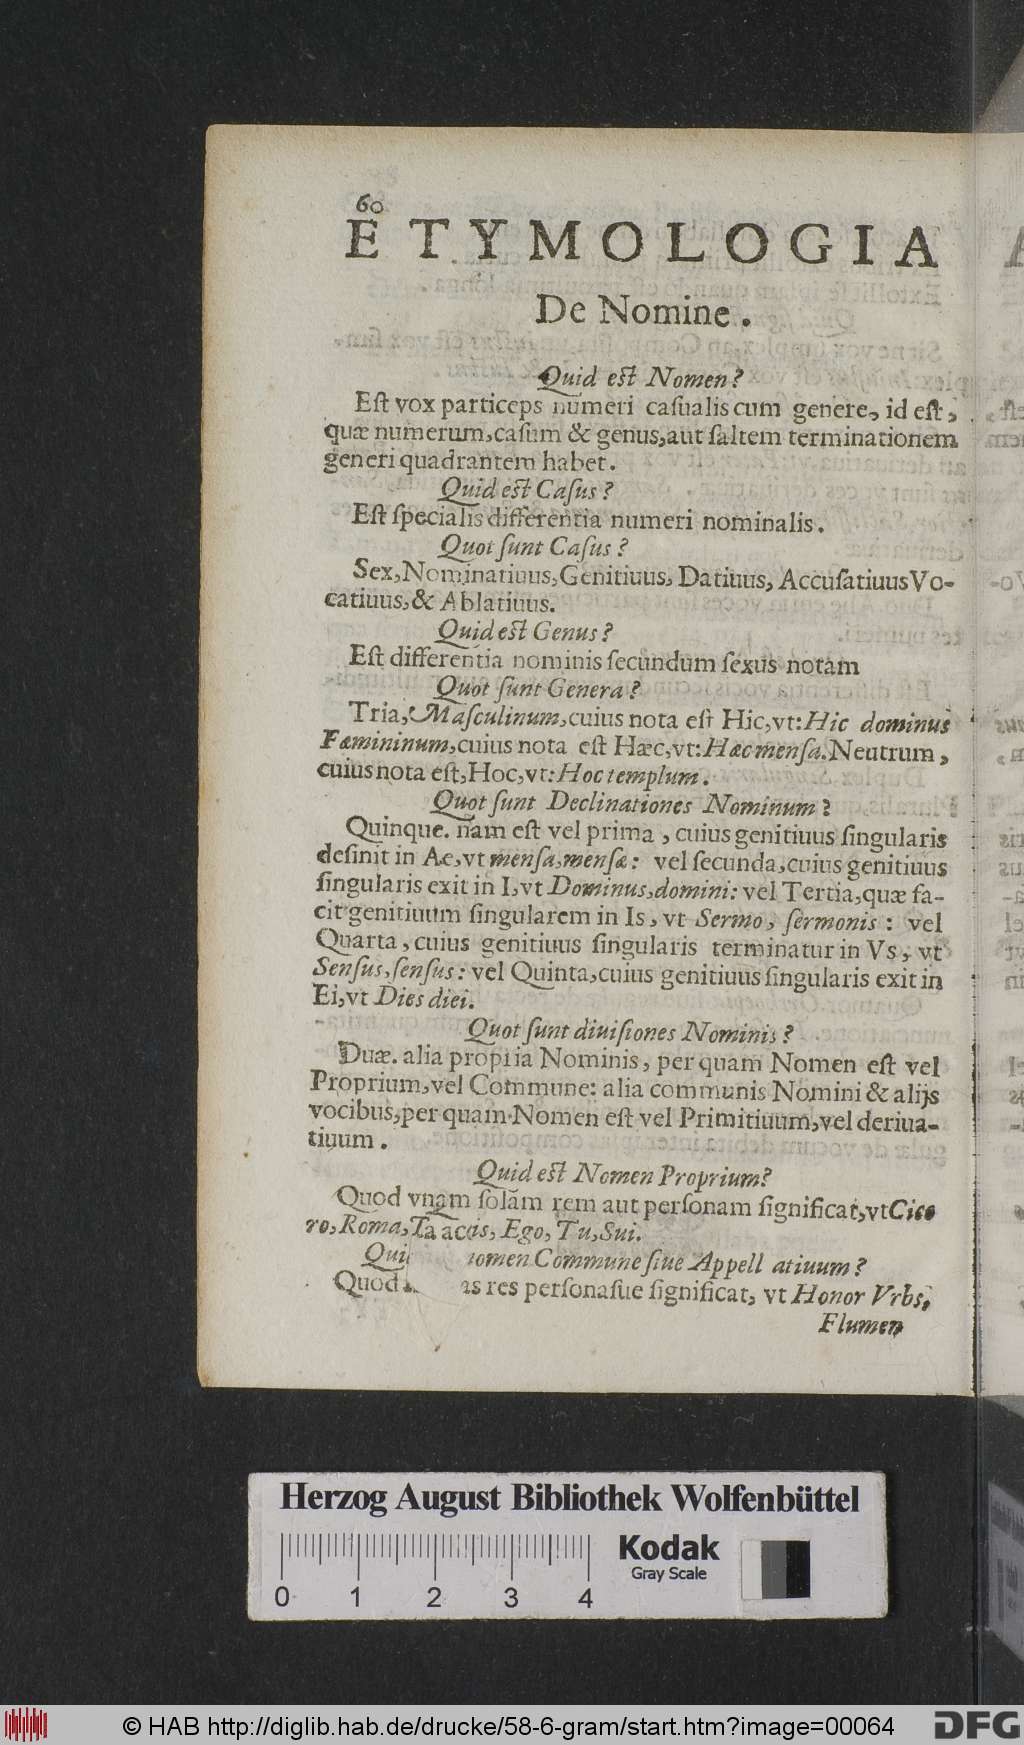 60
ETYMOLOGIA
De Nomine.
Quid est Nomen?
Eſt vox particeps numeri caſualis cum genere, id eſt,
quæ numerum, caſum & genus, aut ſaltem terminationem
generi quadrantem habet.
Quid est Caſus?
Eſt ſpecialis differentia numeri nominalis.
Quot ſunt Caſus?
Sex, Nominatiuus, Genitiuus, Datiuus, Accuſatiuus Vo-
catiuus, & Ablatiuus.
Quid est Genus?
Eſt differentia nominis ſecundum ſexus notam
Quot ſunt Genera?
Tria, Maſculinum, cuius nota eſt Hic, vt: Hic dominus
Fæmininum, cuius nota eſt Hæc, vt: Hæc menſa. Neutrum,
cuius nota eſt, Hoc, vt: Hoc templum.
Quot ſunt Declinationes Nominum?
Quinque. nam eſt vel prima, cuius genitiuus ſingularis
deſinit in Ae, vt menſa, menſæ: vel ſecunda, cuius genitiuus
ſingularis exit in I, vt Dominus, domini: vel Tertia, quæ fa-
cit genitiuum ſingularem in Is, vt Sermo, ſermonis: vel
Quarta, cuius genitiuus ſingularis terminatur in Vs, vt
Senſus, ſenſus: vel Quinta, cuius genitiuus ſingularis exit in
Ei, vt Dies diei.
Quot ſunt diuiſiones Nominis?
Duæ. alia propria Nominis, per quam Nomen eſt vel
Proprium, vel Commune: alia communis Nomini & alijs
vocibus, per quam Nomen eſt vel Primitiuum, vel deriua-
tiuum.
Quid est Nomen Proprium?
Quod vnam ſolam rem aut perſonam ſignificat, vt Cice
ro, Roma, Ego, Tu, Sui.
Commune ſiue Appell atiuum?
Quod res perſonaſue ſignificat, vt Honor Vrbs,
Flumen
Herzog August Bibliothek Wolfenbüttel
0 1 2 3 4
Kodak
Gray Scale
© HAB http://diglib.hab.de/drucke/58-6-gram/start.htm?image=00064
DFG